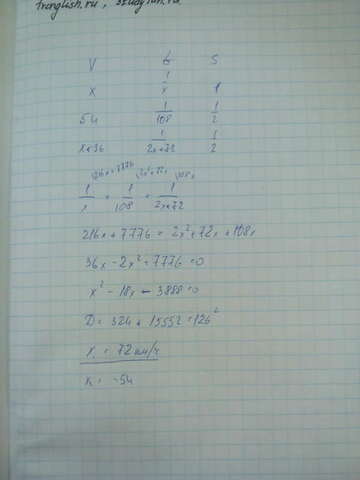 franglish.ru, studyfun.ru.
V t S
x 1/x 1
54 1/108 1/2
x+36 1/2x+72 1/2
216x+7776 2x²+72x 108x
1/x = 1/108 + 1/2x+72
216x + 7776 = 2x² + 72x + 108x
36x - 2x² + 7776 = 0
x² - 18x - 3888 = 0
D = 324 + 15552 = 126²
x₁ = 72 км/ч
x₂ = -54